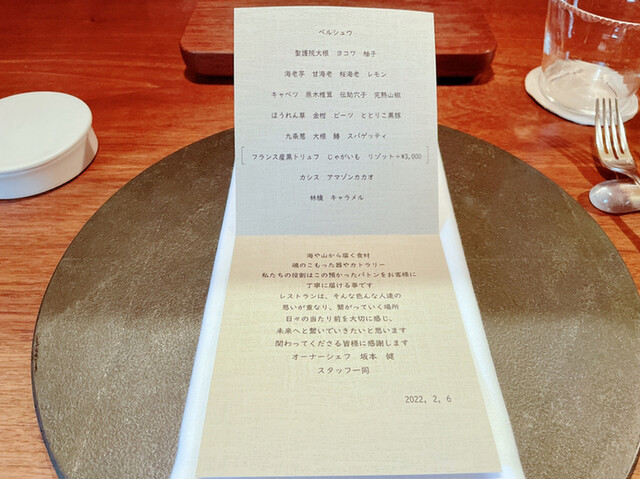 ペルシュウ
聖護院大根 ヨコワ 柚子
海老芋 甘海老 桜海老 レモン
キャベツ 原木椎茸 伝助穴子 完熟山椒
ほうれん草 金柑 ビーツ ととりこ黒豚
九条葱 大根 鰆 スパゲッティ
[フランス産黒トリュフ じゃがいも リゾット+¥3,000]
カシス アマゾンカカオ
林檎 キャラメル
海や山から届く食材
魂のこもった器やカトラリー
私たちの役割はこの預かったバトンをお客様に
丁寧に届ける事です
レストランは、そんな色んな人達の
思いが重なり、繋がっていく場所
日々の当たり前を大切に感じ、
未来へと繋いでいきたいと思います
関わってくださる皆様に感謝します
オーナーシェフ 坂本 健
スタッフ一同
2022, 2, 6